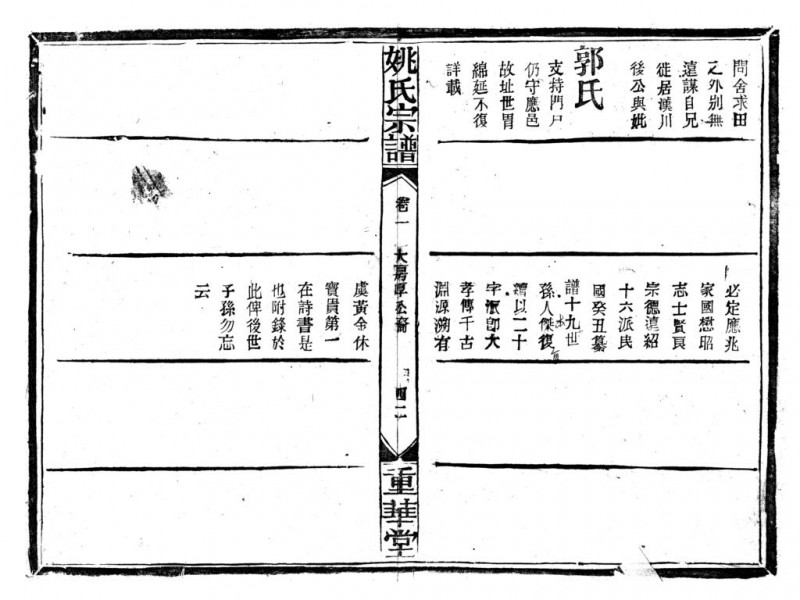 問舍求田
之外別無
遠謀自兄
徙居漢川
後公與妣
郭氏
支持門戸
仍守應邑
故址世胃
綿延不復
詳載
必定應兆
家國懋昭
志士賢良
宗德遠紹
十六派民
國癸丑纂
譜十九世
孫人傑復
續以二十
字派卽大
孝傳千古
淵源溯有
姚氏宗譜
卷一
大
公裔
四二
重華堂
虞黃金休
寶貴第一
在詩書是
也附錄於
此俾後世
子孫勿忘
云